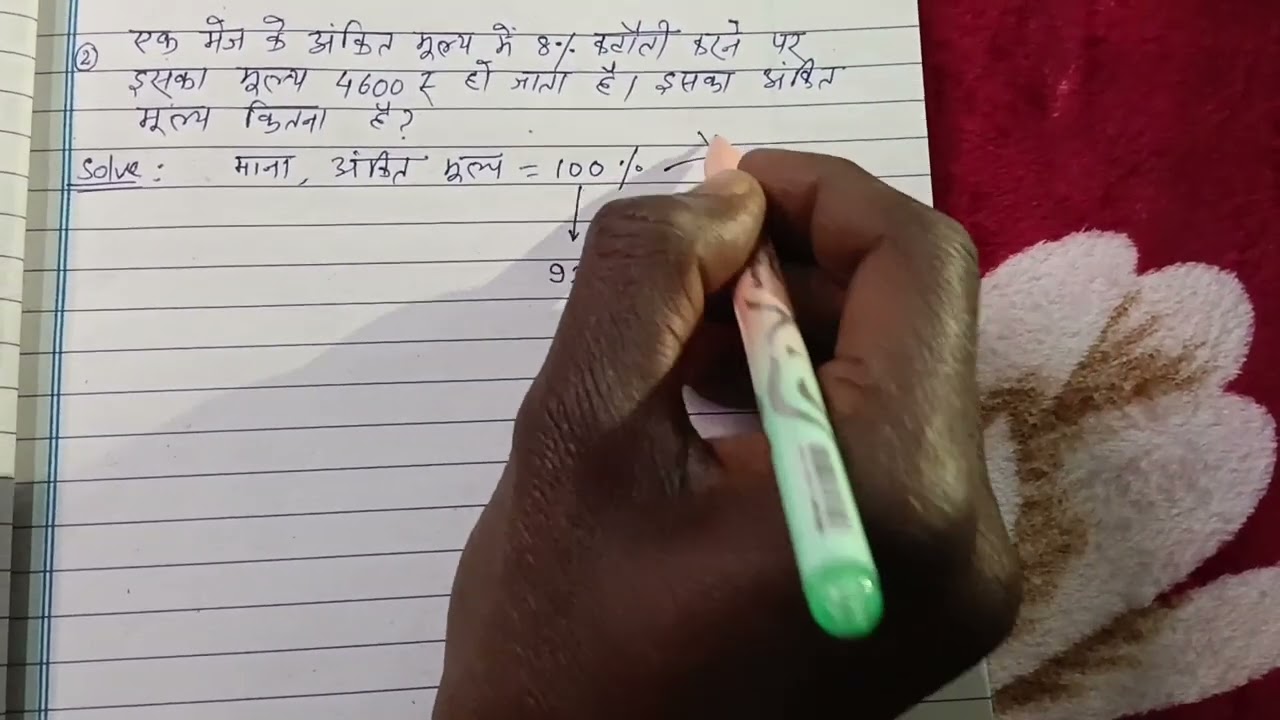 ② एक मेज के अंकित मूल्य में 8% कटौती करने पर
इसका मूल्य 4600 ₹ हो जाता है। इसका अंकित
मूल्य कितना है?
Solve : माना, अंकित मूल्य = 100 %